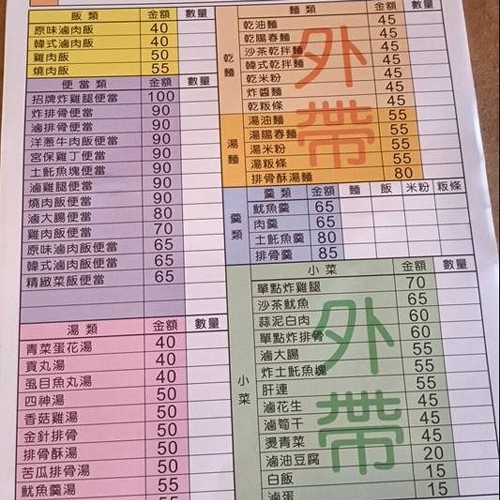 飯類 金額 數量
原味滷肉飯 40
韓式滷肉飯 40
雞肉飯 50
燒肉飯 55
便當類 金額 數量
招牌炸雞腿便當 100
炸排骨便當 90
滷排骨便當 90
洋蔥牛肉飯便當 90
宮保雞丁便當 90
土魠魚塊便當 90
滷雞腿便當 90
燒肉飯便當 90
滷大腸便當 80
雞肉飯便當 70
原味滷肉飯便當 65
韓式滷肉飯便當 65
精緻菜飯便當 65
湯類 金額 數量
青菜蛋花湯 40
貢丸湯 40
虱目魚丸湯 40
四神湯 50
香菇雞湯 50
金針排骨 50
排骨酥湯 50
苦瓜排骨湯 50
魷魚羹湯 55
麵類 金額 數量
乾麵
乾油麵 45
乾陽春麵 45
沙茶乾拌麵 45
韓式乾拌麵 45
乾米粉 45
炸醬麵 45
乾粄條 45
湯麵
湯油麵 55
湯陽春麵 55
湯米粉 55
湯粄條 55
排骨酥湯麵 80
外帶
羹類
羹類 金額 麵 飯 米粉 粄條
魷魚羹 65
肉羹 65
土魠魚羹 80
排骨羹 85
小菜
小菜 金額 數量
單點炸雞腿 70
沙茶魷魚 65
蒜泥白肉 60
單點炸排骨 60
滷大腸 55
炸土魠魚塊 55
肝連 55
滷花生 45
滷筍干 45
燙青菜 45
滷油豆腐 20
白飯 15
滷蛋 15
外帶